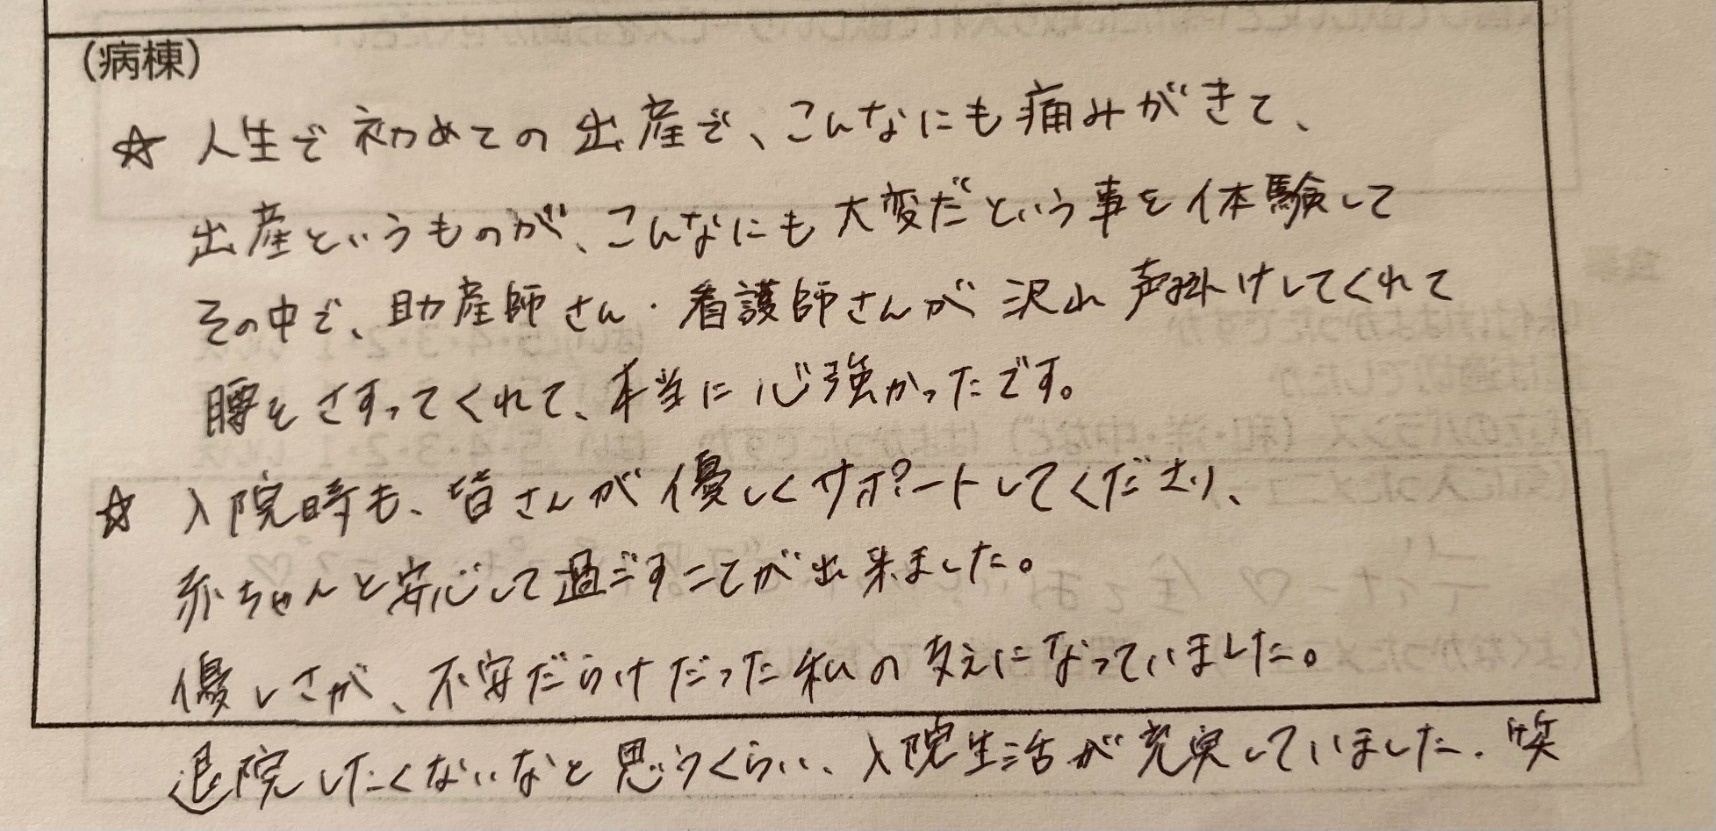 (病棟)
☆ 人生で初めての出産で、こんなにも痛みがきて、
出産というものが、こんなにも大変だという事を体験して
その中で、助産師さん・看護師さんが沢山声掛けしてくれて
腰をさすってくれて、本当に心強かったです。
☆ 入院時も、皆さんが優しくサポートしてくださり、
赤ちゃんと安心して過ごすことが出来ました。
優しさが、不安だらけだった私の支えになっていました。
退院したくないなと思うくらい、入院生活が充実していました。笑